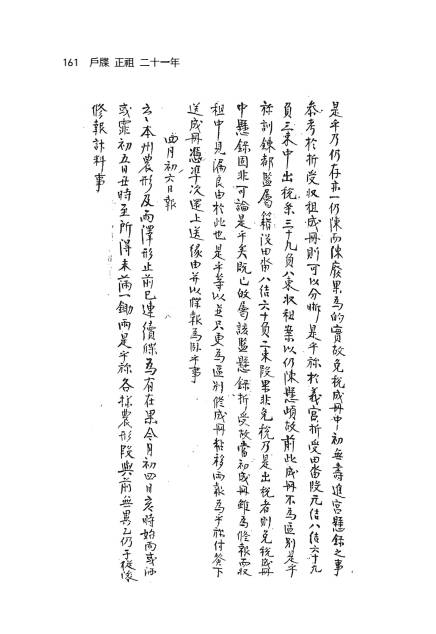 161 戶牒 正祖 二十一年
是乎乃仍存亦一仍陳而陳廢果爲的實故免稅成冊中初無壽進宮懸錄之事
叅考於折受收租成冊則可以分晰是乎於義宮折受田畓陵元結八結六十九
負三束中出稅条三十九負八束收租案以仍陳懸頉故前此成冊不爲區別是乎
訓鍊都監屬籍沒田畓八結六十負二束段果非免稅乃是出稅者則免稅成冊
中懸錄固非可論是乎矣旣已故屬該監懸錄折受故當初成冊雖爲修報而收
租中見漏良由於此也是乎等以並只更爲區別修成冊粘移兩報爲乎於付簽下
送成冊憑準次還上送緣由并以牒報爲臥乎事
四月初六日報
云云本州農形及雨澤形止前已連續牒爲有在果今月初四日亥時始雨或洒
或霏初五日丑時至所得未滿一鋤雨是乎各樣農形段與前無異乙仍于從後
修報計料事